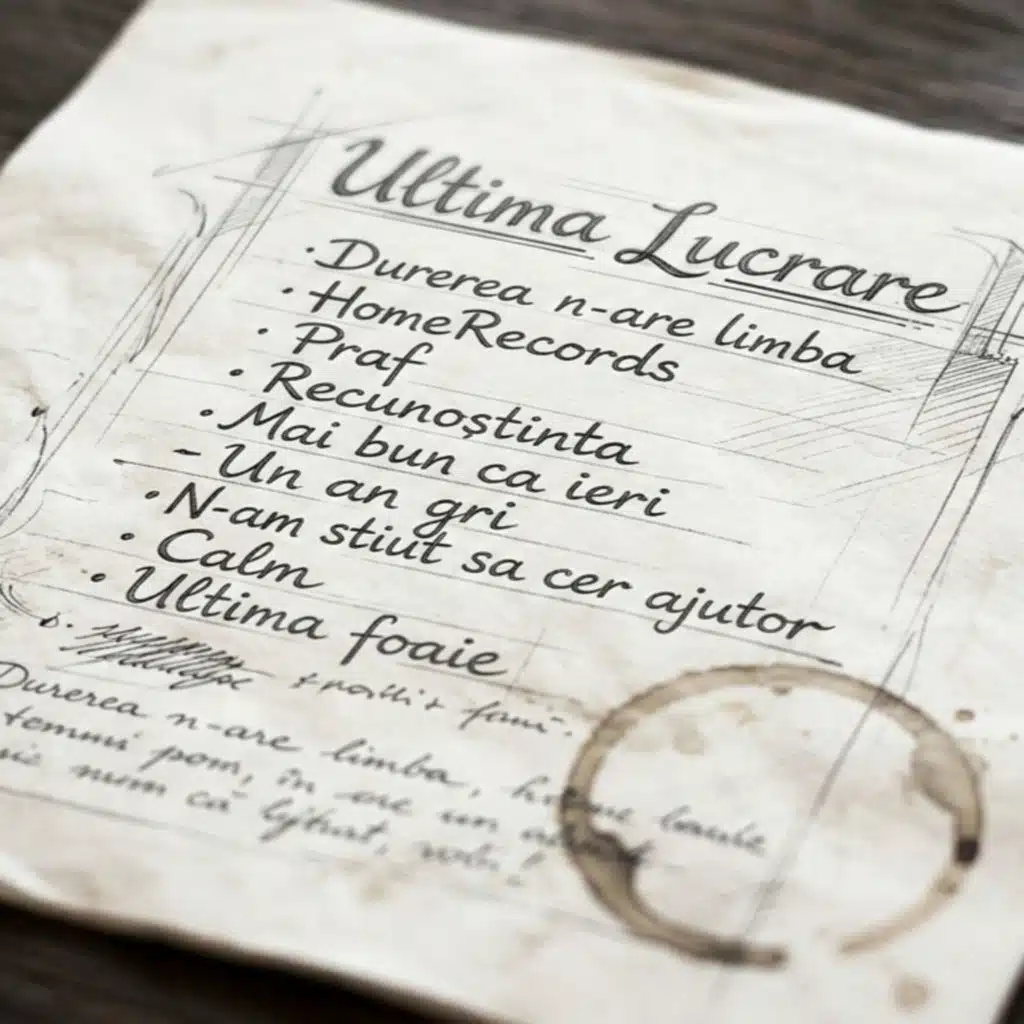 Ultima Lucrare
· Durerea n-are limba
· HomeRecords
· Praf
· Recunoștinta
· Mai bun ca ieri
- Un an gri
· N-am stiut sa cer ajutor
· Calm
· Ultima foaie
Durerea n-are limba,
pom, în un
că